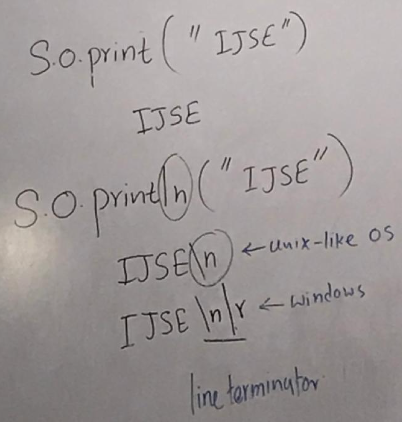 S.o.print("IJSE")
IJSE
S.O.println("IJSE")
IJSE\n ← unix-like OS
IJSE \n\r ← windows
line terminator